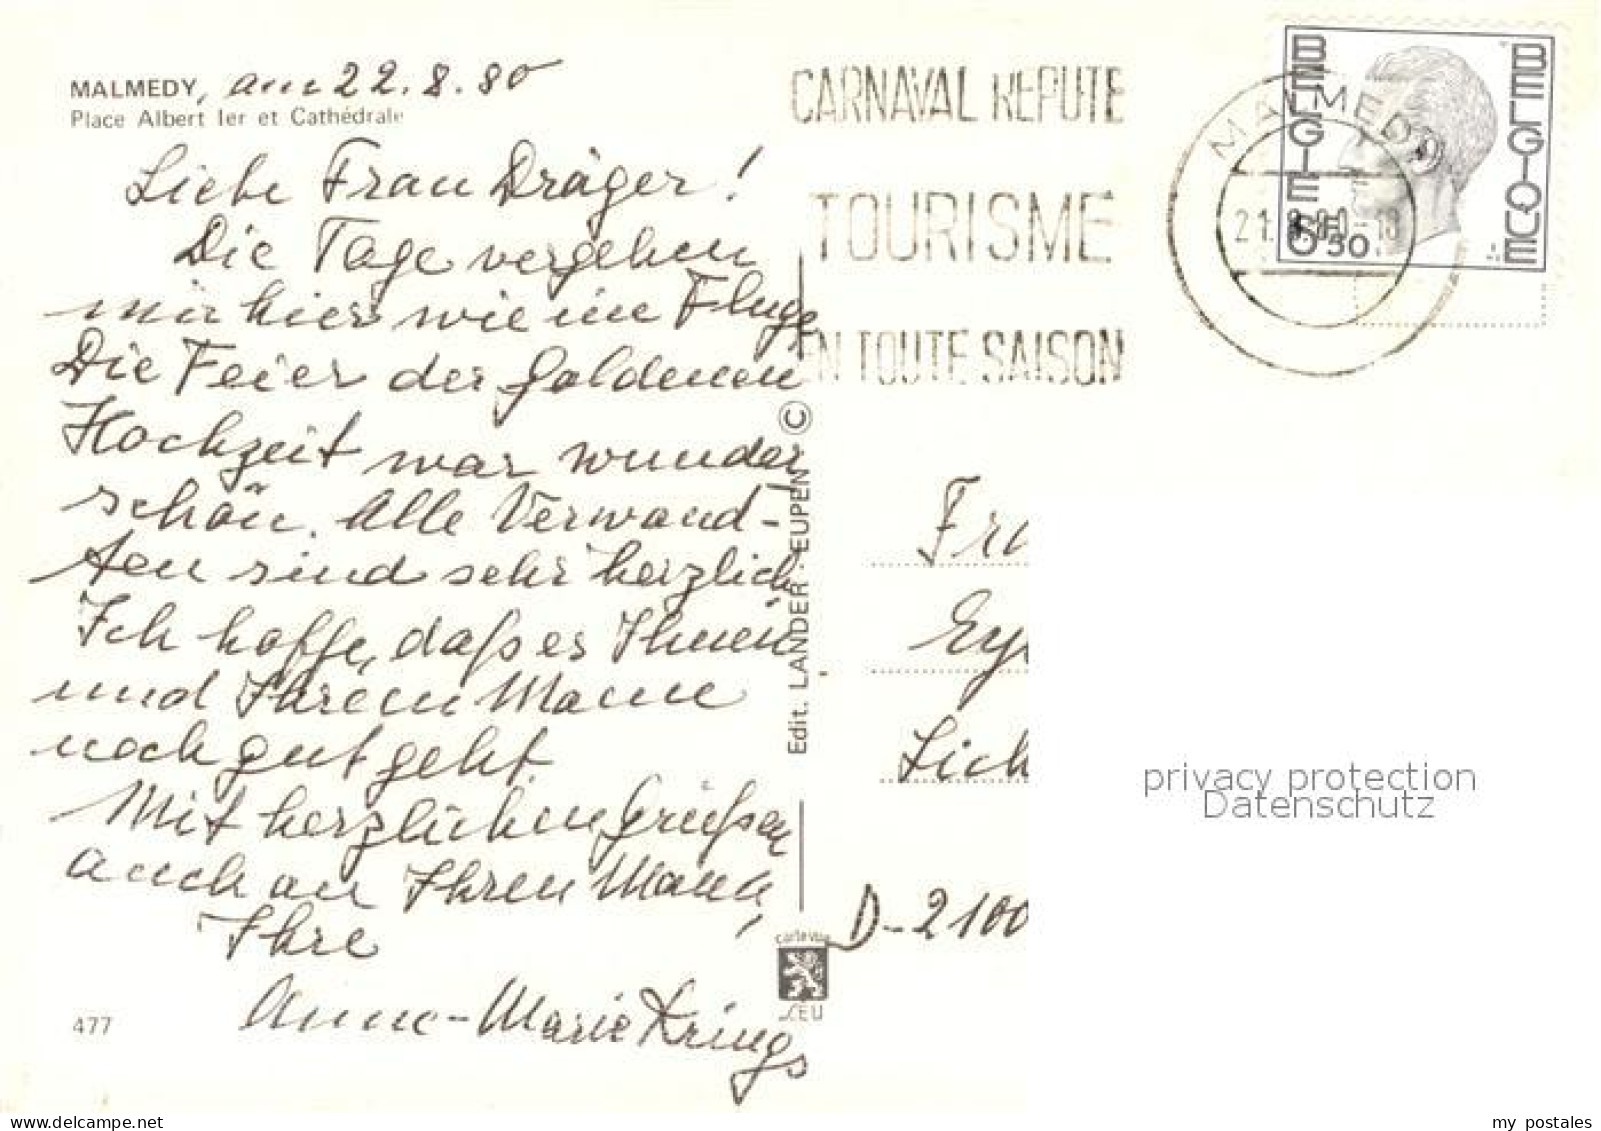 MALMEDY, am 22.8.80
Place Albert Ier et Cathédrale
Liebe Frau Dräger!
Die Tage vergehen
mir hier wie im Fluge
Die Feier der goldenen
Hochzeit war wunder
schön. Alle Verwand-
ten sind sehr herzlich
Ich hoffe, daß es Ihnen
und Ihrem Manne
noch gut geht
Mit herzlichen Grüßen
auch an Ihren Mann,
Ihre
Anne-Marie Krings
477
Edit. LANDER · EUPEN ©
carte vue
CARNAVAL REPUTE
TOURISME
EN TOUTE SAISON
MALMEDY
BELGIE BELGIQUE
6F50
Fra
Ey
Lich
D-2100
privacy protection
Datenschutz
my postales